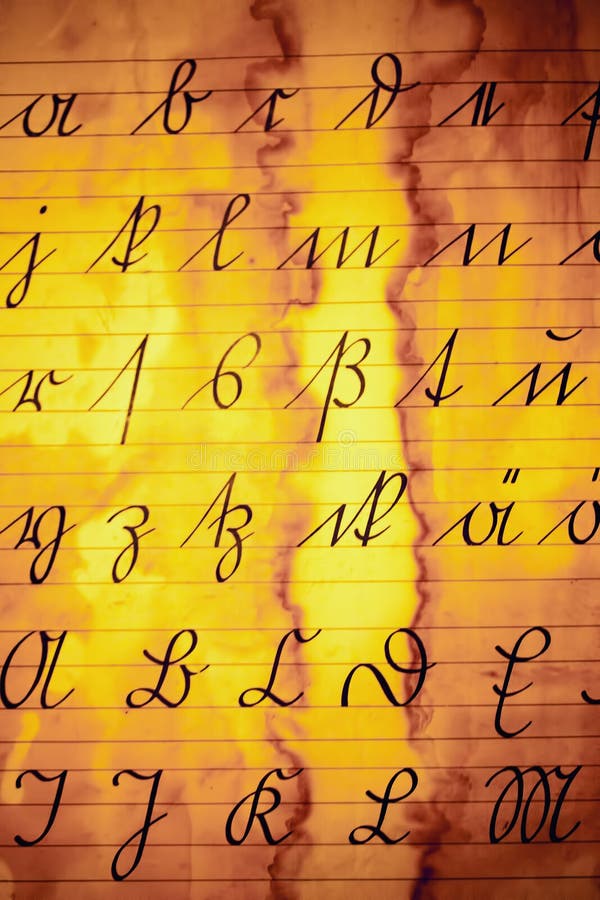 a b c d e f
j k l m n
r ſ s ß t u
y z tz ck ä ö
A B C D E
I J K L M